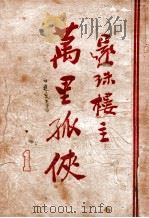 還珠樓主
萬里孤俠
1